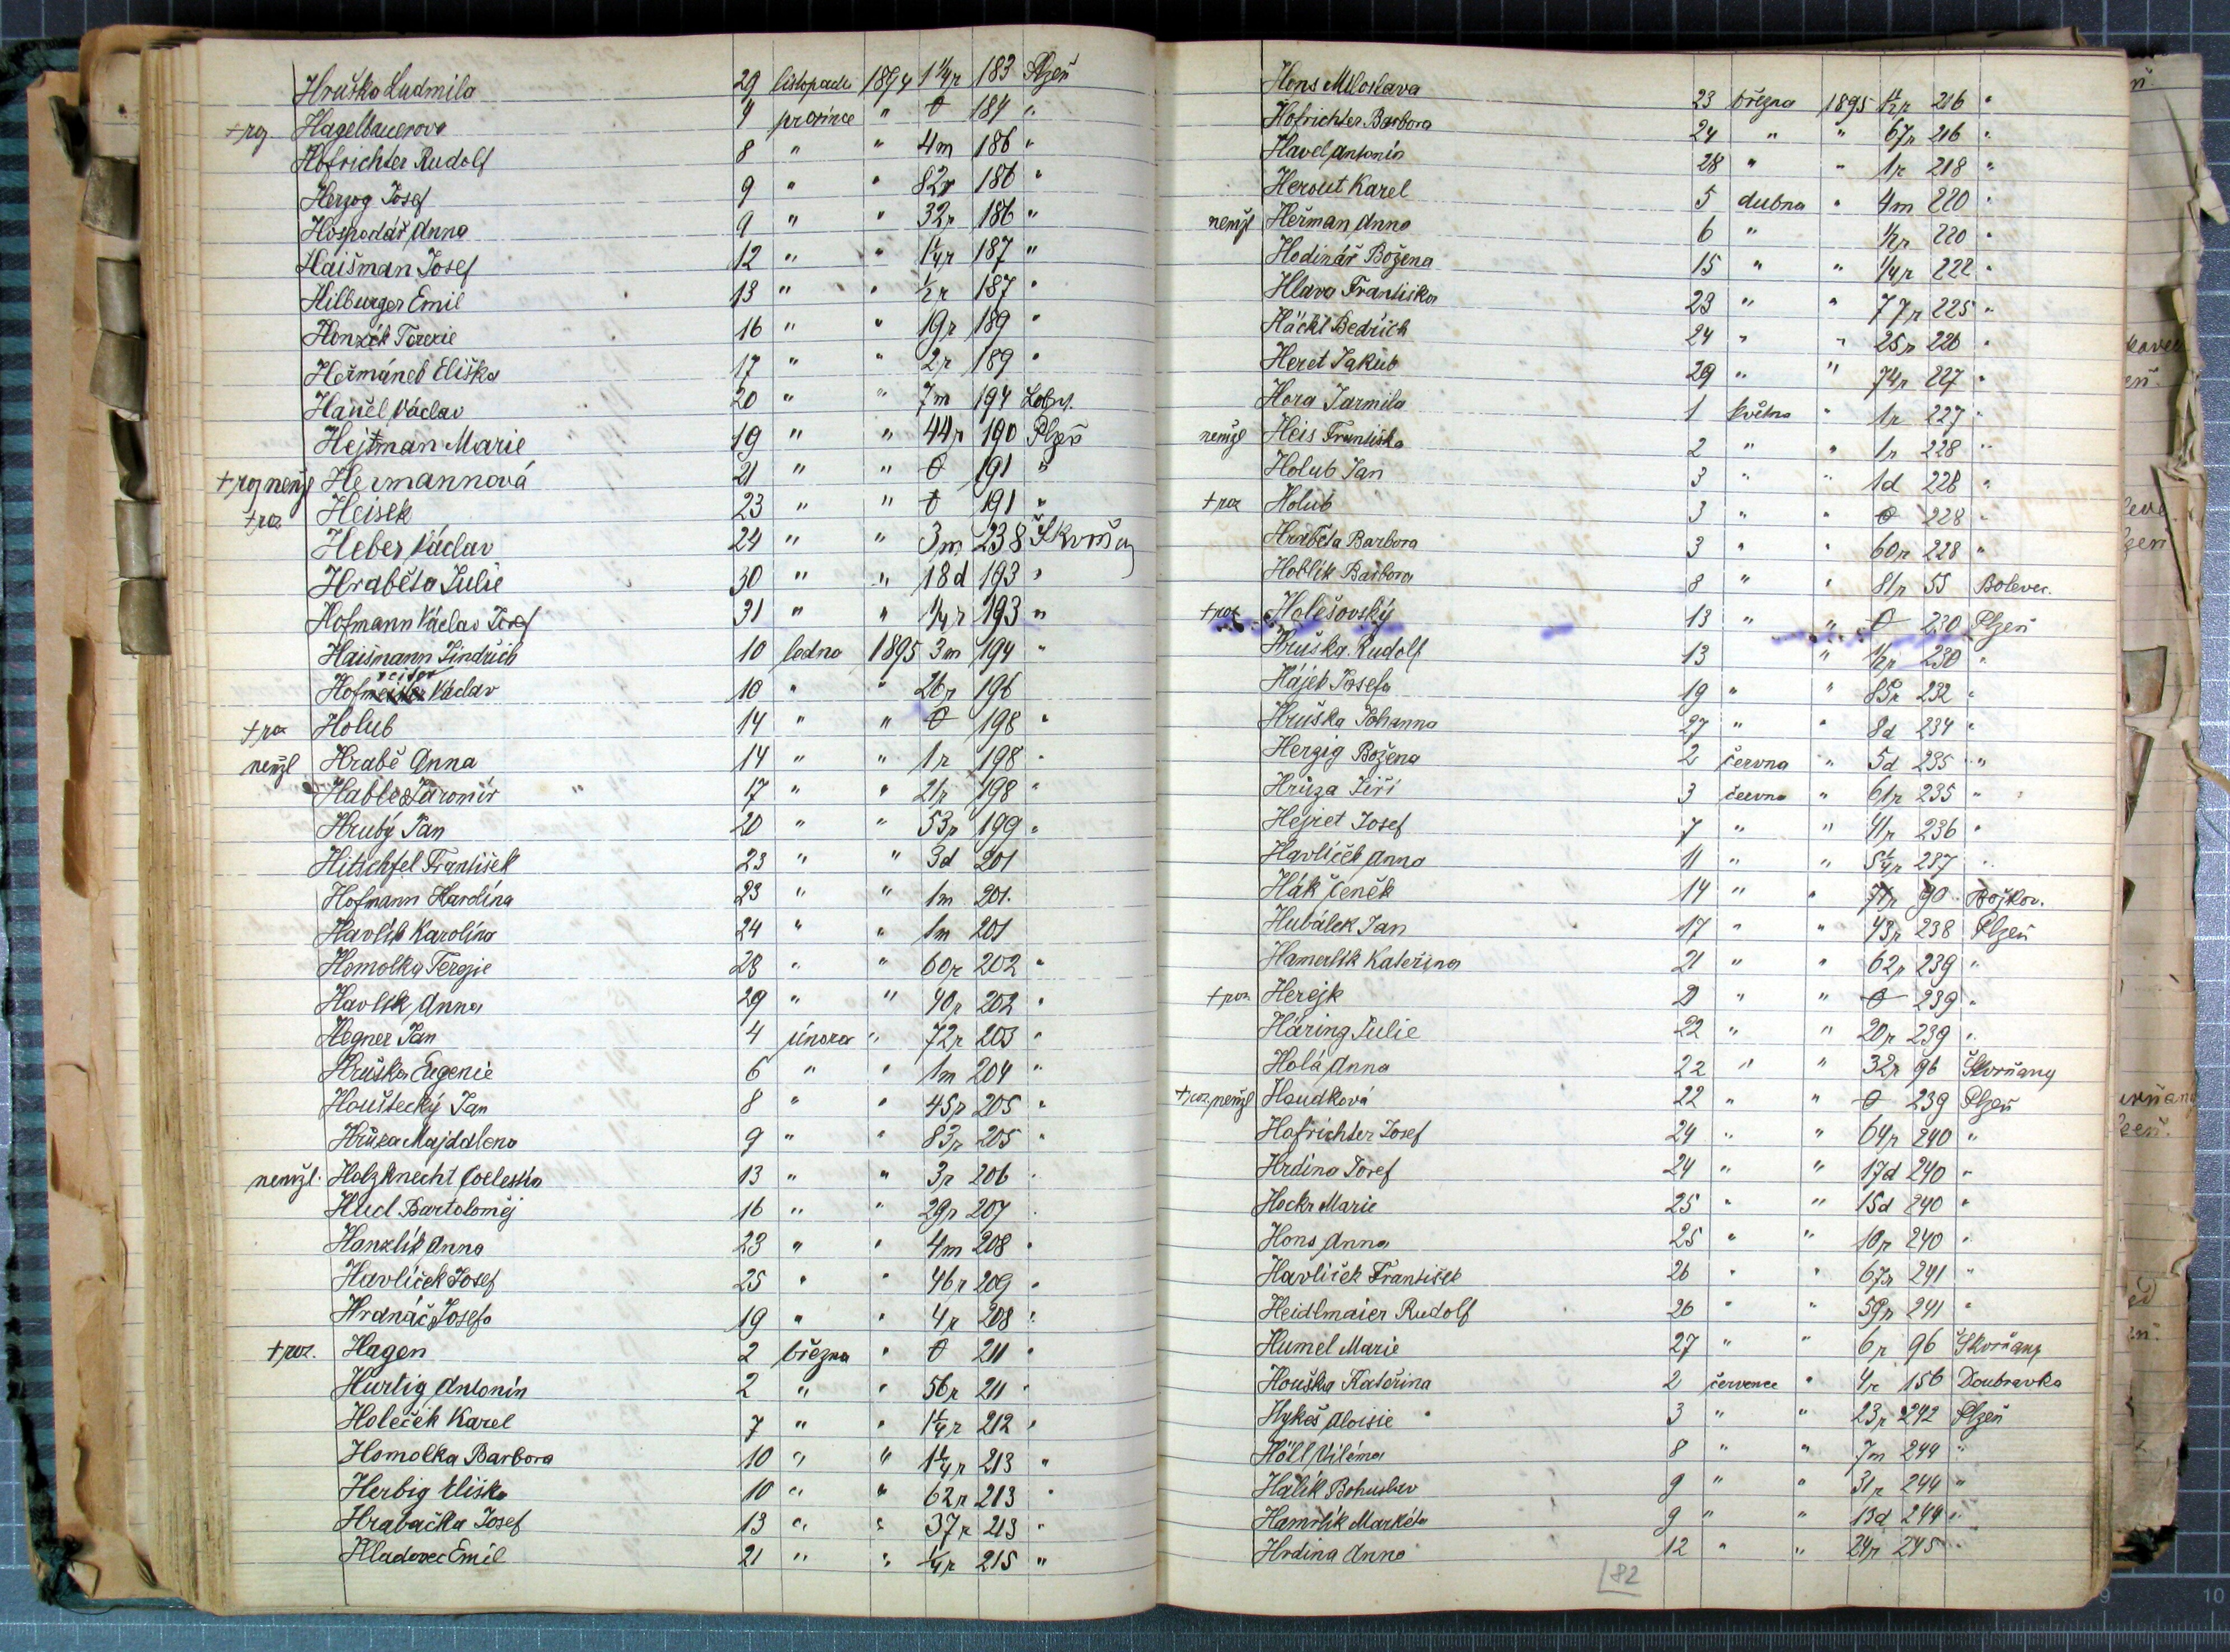 Hruška Ludmila 29 listopadu 1894 1¼r 183 Plzeň
+ roz Hagelbauerova 4 prosince " 0 184 "
Hofrichter Rudolf 8 " " 4m 186 "
Herzog Josef 9 " " 82r 186 "
Hospodář Anna 9 " " 32r 186 "
Haišman Josef 12 " " 1¼r 187 "
Hilburger Emil 13 " " ½r 187 "
Honzík Terezie 16 " " 19r 189 "
Heřmánek Eliška 17 " " 2r 189 "
Hanèl Václav 20 " " 7m 194 Lobz.
Hejtman Marie 19 " " 44r 190 Plzeň
+ roz nemzl Hermannová 21 " " 0 191 "
+ roz Heisek 23 " " 0 191 "
Heber Václav 24 " " 3m 238 Skvrňany
Hraběta Julie 30 " " 18d 193 "
Hofmann Václav Josef 31 " " ¼r 193 "
Haismann Jindřich 10 ledna 1895 3m 194 "
Hofreiter Václav 10 " " 26r 196
+ roz Holub 14 " " 0 198 "
nemzl Hrabě Anna 14 " " 1r 198 "
Hable Jaromír 17 " " 21r 198 "
Hrubý Jan 20 " " 53r 199 "
Hitschfel František 23 " " 3d 201
Hofmann Hardina 23 " " 1m 201.
Havlík Karolína 24 " " 1m 201
Homolka Terezie 28 " " 60r 202 "
Havlík Anna 29 " " 40r 202 "
Hegner Jan 4 února " 72r 203 "
Hruška Eugenie 6 " " 1m 204 "
Houštecký Jan 8 " " 45r 205 "
Hrůza Majdalena 9 " " 83r 205 "
nemzl. Holzknecht Coelestia 13 " " 3r 206 "
Hud Bartoloměj 16 " " 29r 207
Hanzlík Anna 23 " " 4m 208 "
Havlíček Josef 25 " " 46r 209 "
Hrdnáč Josefa 19 " " 4r 208 "
+ roz. Hagen 2 března " 0 211 "
Hurtig Antonín 2 " " 56r 211 "
Holeček Karel 7 " " 1¼r 212 "
Homolka Barbora 10 " " 1¼r 213 "
Herbig Eliška 10 " " 62r 213 "
Hrabačka Josef 13 " " 37r 213 "
Hladovec Emil 21 " " ¼r 215 "
Hons Miloslava 23 března 1895 ½r 216 "
Hofrichter Barbora 24 " " 67r 216 "
Havel Antonín 28 " " 1r 218 "
Herout Karel 5 dubna " 4m 220 "
nemzl Heřman Anna 6 " ½r 220 "
Hodinář Božena 15 " " ¼r 222 "
Hlava Františka 23 " " 77r 225 "
Häckl Bedřich 24 " " 25r 226 "
Heret Jakub 29 " " 74r 227 "
Hora Jarmila 1 května " 1r 227 "
nemzl Heis Františka 2 " " 1r 228 "
Holub Jan 3 " " 1d 228 "
+ roz Holub 3 " " 0 228 "
Hraběta Barbora 3 " " 60r 228 "
Hoblík Barbora 8 " " 81r 55 Bolevec.
+ roz Holešovský 13 " " 0 230 Plzeň
Hruška Rudolf 13 " ½r 230 "
Hájek Josefa 19 " " 85r 232 "
Hruška Johanna 27 " " 8d 234 "
Herzig Božena 2 června " 5d 235 "
Hrůza Jiří 3 června " 61r 235 "
Hejret Josef 7 " " 41r 236 "
Havlíček Anna 11 " " 5¼r 237 "
Hák Čeněk 14 " " 71r 90 Božkov.
Hubálek Jan 17 " " 43r 238 Plzeň
Hamerlík Kateřina 21 " " 62r 239 "
+ roz. Herejk 21 " " 0 239 "
Häring Julie 22 " " 20r 239 "
Holá Anna 22 " " 32r 96 Skvrňany
+ roz. nemzl Houdková 22 " " 0 239 Plzeň
Hofrichter Josef 24 " " 64r 240 "
Hrdina Josef 24 " " 17d 240 "
Hockr Marie 25 " " 15d 240 "
Hons Anna 25 " " 10r 240 "
Havlíček František 26 " " 67r 241 "
Heidlmaier Rudolf 26 " " 59r 241 "
Humel Marie 27 " " 6r 96 Skvrňany
Houška Kateřina 2 července " 4r 156 Doubravka
Hykeš Aloisie 3 " " 23r 242 Plzeň
Höll Viléma 8 " " 7m 244 "
Halík Bohuslav 9 " " 31r 244 "
Hamrlík Markéta 9 " " 13d 244 "
Hrdina Anna 12 " " 24r 245 "
82
9 10